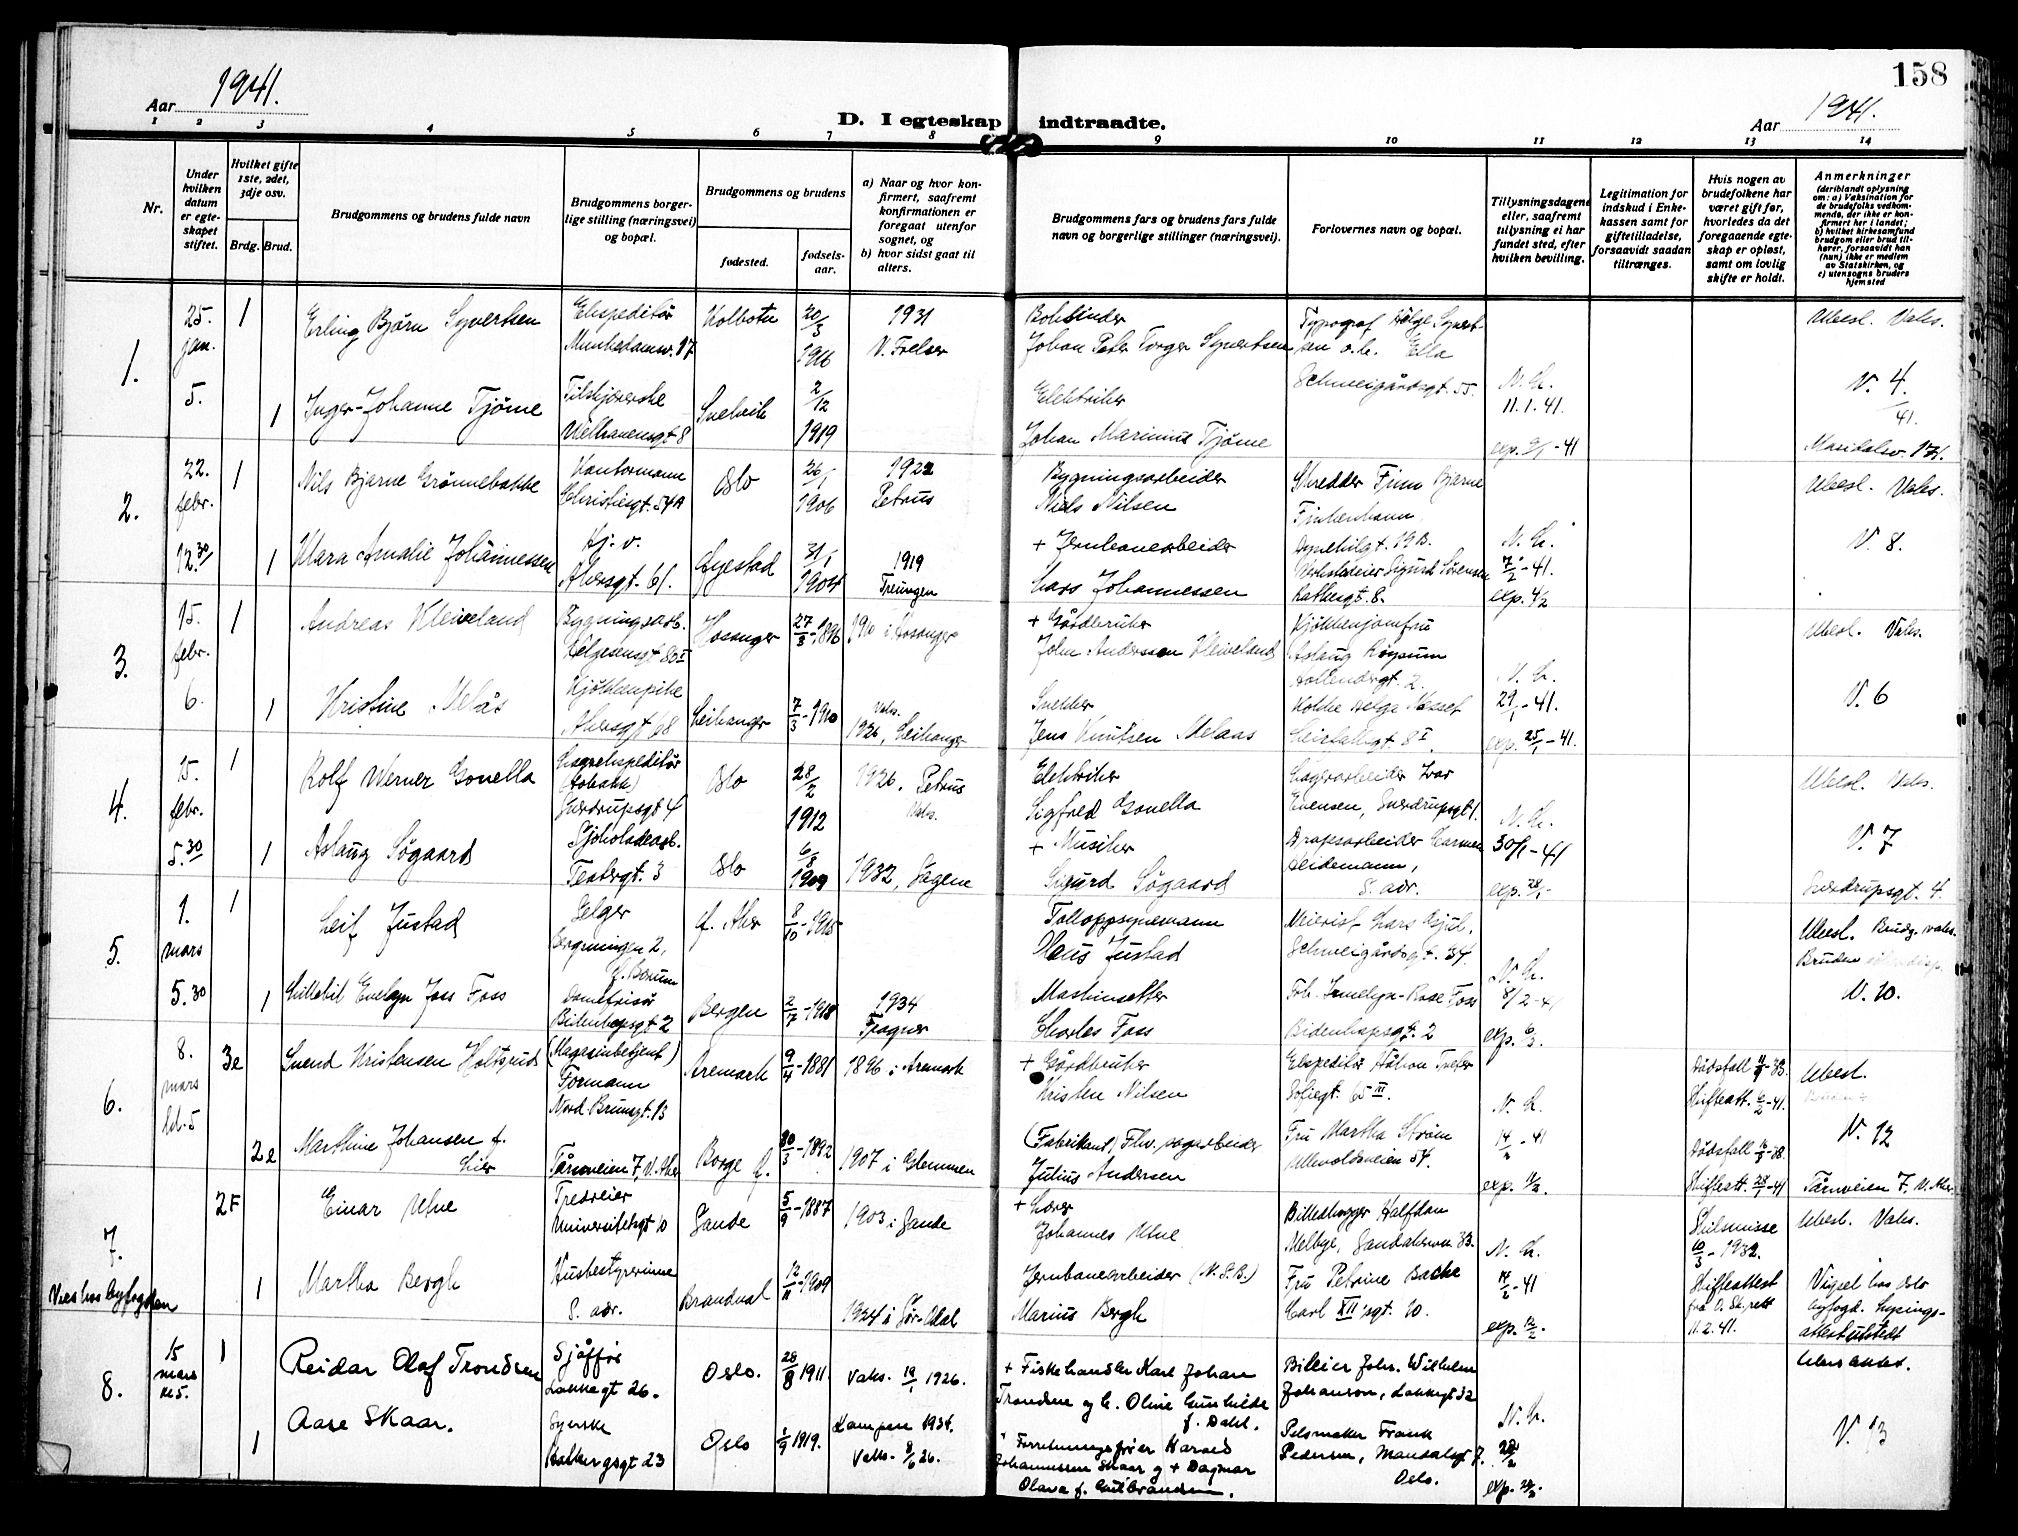 158
Aar 1941.
Aar 1941.
D. I egteskap indtraadte.
1 2 3 4 5 6 7 8 9 10 11 12 13 14
Nr.
Under hvilken datum er egteskapet stiftet.
Hvilket gifte 1ste, 2det, 3dje osv.
Brdg. Brud.
Brudgommens og brudens fulde navn
Brudgommens borgerlige stilling (næringsvei) og bopæl.
Brudgommens og brudens
fødested.
fødselsaar.
a) Naar og hvor konfirmert, saafremt konfirmationen er foregaat utenfor sognet, og
b) hvor sidst gaat til alters.
Brudgommens fars og brudens fars fulde navn og borgerlige stillinger (næringsvei).
Forlovernes navn og bopæl.
Tillysningsdagene eller, saafremt tillysning ei har fundet sted, efter hvilken bevilling.
Legitimation for indskud i Enkekassen samt for giftetilladelse, forsaavidt saadan tiltrænges.
Hvis nogen av brudefolkene har været gift før, hvorledes da det foregaaende egteskap er opløst, samt om lovlig skifte er holdt.
Anmerkninger
(deriblandt oplysning om: a) Vaksination for de brudefolks vedkommende, der ikke er konfirmert her i landet;
b) hvilket kirkesamfund brudgom eller brud tilhører, forsaavidt han (hun) ikke er medlem av Statskirken, og
c) utensogns bruders hjemsted
1.
25. jan. 5.
1 Erling Bjørn Syvertsen
Ekspeditør
Munkedamsv. 17
Kolbotn
20/3 1916
1931
V. Frelser
Bokbinder
Johan Peter Torger Syvertsen
Typograf Helge Syvertsen o.h. Ella
Schweigårdsgt. 55.
Ubesl. Vaks.
1 Inger-Johanne Tjøme
Tilskjærerske
Welhavensgt 8
Svelvik
2/12 1919
Elektriker
Johan Marinius Tjøme
N. K.
11.1.41.
V. 4/41.
2.
22. febr. 12.30
1 Nils Bjarne Grønnebakke
Kontormann
Christiesgt. 34A
Oslo
26/1 1906
1922
Petrus
Bygningsarbeider
Niels Nilsen
Skredder Finn Bjarne
Ubesl. Vaks.
1 Klara Amalie Johannessen
Hj. v.
Akersgt. 61.
Gjestad
31/1 1904
1919
Treungen
+ Jernbanearbeider
Lars Johannessen
Sigurd Sørensen
N. K.
7/2-41.
exp. 4/2
V. 8.
3.
15. febr. 6.
1 Andreas Kleiveland
Bygningsarb.
Helgesensgt 80 I
Hosanger
27/3-1896
1910 i Hosanger
+ Gårdbruker
John Anderssen Kleiveland
Kjøkkenjomfru
Aslaug Røysum
Ubesl. Vaks.
1 Kristine Melås
Kjøkkenpike
Akersgt 68
Leikanger
7/3-1910
Vaks.
1926, Leikanger
Snekker
Jens Knutsen Melaas
N. K.
29/1-41.
exp. 25/1-41.
V. 6
4.
15. febr. 5.30
1 Rolf Werner Gonella
Lagerekspeditør
(Tobakk)
Sverdrupsgt 4
Oslo
28/2 1912
1926. Petrus
Vaks.
Elektriker
Sigfred Gonella
Lagerarbeider Ivar
Evensen, Sverdrupsgt 1.
Ubesl. Vaks.
1 Aslaug Søgaard
Sjokoladearb.
Teatergt. 3
Oslo
6/8 1909
1932, Sagene
+ Musiker
Sigurd Søgaard
Heidemann,
S. adr.
N. K.
30/1-41
exp. 28/1-
V. 7
Sverdrupsgt. 4.
5.
1. mars 5.30
1 Leif Justad
Selger
Ø. Aker
8/10-1915
Tolloppsynsmann
Olaus Justad
Meierist Lars
Schweigårdsgt. 34.
Ubesl. Brudg. vaks.
Bruden
1 Lillebil Evelyn Joss Foss
Damefrisør
Bidenkapsgt 2
Bergen
2/7-1918
1934
Frogner
Maskinsetter
Charles Foss
Frk. Irmelyn-Rose Foss
Bidenkapsgt. 2
N. K.
8/2-41
exp. 6/3.
V. 10.
6.
8. mars kl. 5
3e Svend Kristensen Holtsrud
(Magasinbetjent)
Formann
Nord. Brunsgt. 13
Aremark
9/4-1881
1896 i Aremark
+ Gårdbruker
Kristen Nilsen
Ekspeditør Håkon
Sofiegt. 65 III.
Ubesl.
2e Marthine Johansen f. Lier
Tårnveien 7, V. Aker
Borge
30/3-1892
1907 i Glemmen
(Fabrikant) Fhv. sagarbeider
Julius Andersen
Fru Martha Strøm
Ullevoldsveien 54.
N. K.
14/2-41
V. 12
Tårnveien 7, V. Aker.
7.
Vies hos byfogden
2F Einar Ulve
Trelreier
Universitetsgt 10
Sande
5/9-1887
1903 i Sande
+ Lærer
Johannes Ulve
Billedhugger Halfdan
N. K.
Skilsmisse
10/3-1932.
Ubesl. Vaks.
1 Martha Bergh
Husbestyrerinne
S. adr.
Brandval
12/11-1909
1924 i Sør-Odal
Jernbanearbeider (N.S.B.)
Marius Bergh
Fru Petrine Backe
Carl XII'sgt. 10.
14/2-41
exp. 12/2-
Skifteattest
fra O. Sk.rett
11.2.41.
Viget hos Oslo
byfogd. Lysings-
attest utstedt
8.
15 mars kl 5.
1 Reidar Olaf Trondsen
Sjåfør
Lakkegt 26.
Oslo.
28/8 1911.
Vaks. 19/1 1926.
+ Fiskehandler Karl Johan
Trondsen og h. Oline Gunhilde
f. Dahl.
Bileier Joh. Wilhelm
Johanson, Lakkegt 32
1 Aase Skaar.
Syerske
Oslo
1/9 1919.
Kampen 1934.
Vaks. 8/6 26.
Forretningsfører Harald
Johannessen Skaar og + Dagmar
Olava f. Gulbrandsen.
Pelsmaker Frank
Pedersen, Mandalsgt 7.
Oslo.
N. K.
V. 13